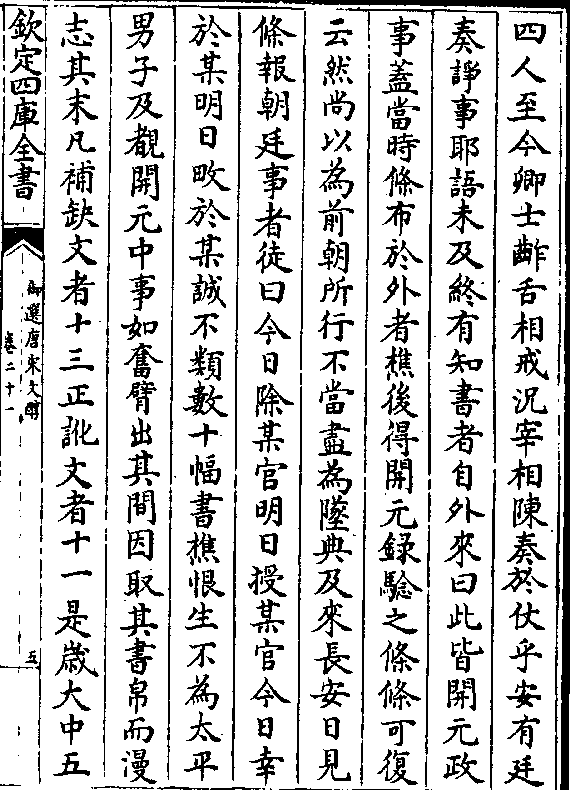 四人至今卿士齚舌相戒況宰相陳奏於仗乎安有廷
奏諍事耶語未及終有知書者自外來曰此皆開元政
事蓋當時條布於外者樵後得開元錄驗之條條可復
云然尚以為前朝所行不當盡為墜典及來長安日見
條報朝廷事者徒曰今日除某官明日授某官今日幸
於某明日畋於某誠不類數十幅書樵恨生不為太平
男子及覩開元中事如奮臂出其間因取其書帛而漫
志其末凡補缺文者十三正訛文者十一是歲大中五
欽定四庫全書
御選唐宋文醇
卷二十一
五